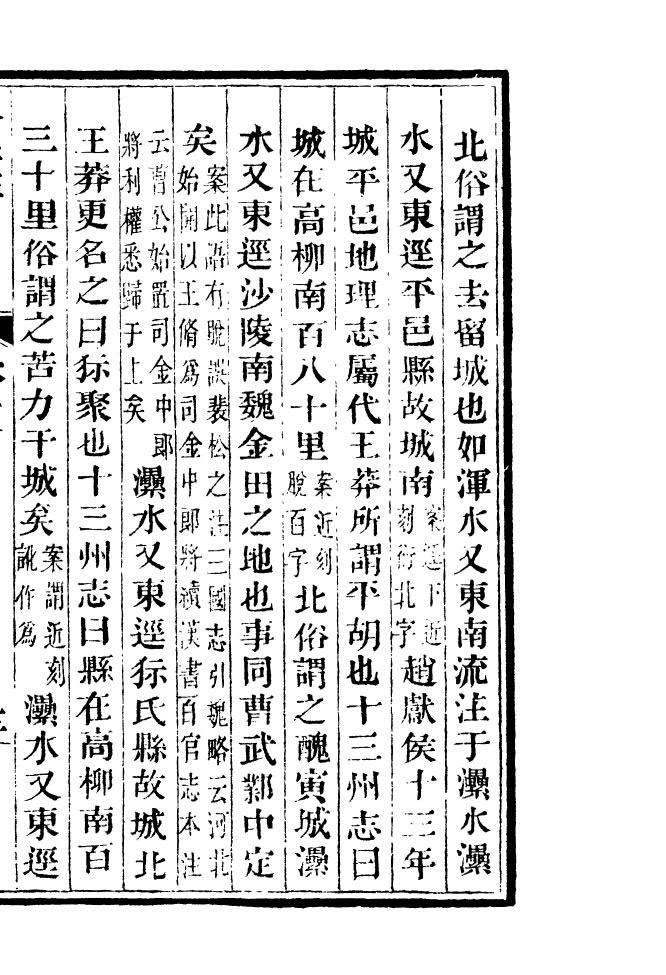 北俗謂之去留城也如渾水又東南流注于㶟水㶟
水又東逕平邑縣故城南案逕下近刻衍北字趙獻侯十三年
城平邑地理志屬代王莽所謂平胡也十三州志曰
城在高柳南百八十里案近刻脫百字北俗謂之醜寅城㶟
水又東逕沙陵南魏金田之地也事同曹武鄴中定
矣案此語有脫誤裴松之注三國志引魏略云河北始開以王脩爲司金中郎將續漢書百官志本注
云曹公始置司金中郎將利權悉歸于上矣㶟水又東逕狋氏縣故城北
王莽更名之曰狋聚也十三州志曰縣在高柳南百
三十里俗謂之苦力干城矣案謂近刻訛作爲㶟水又東逕